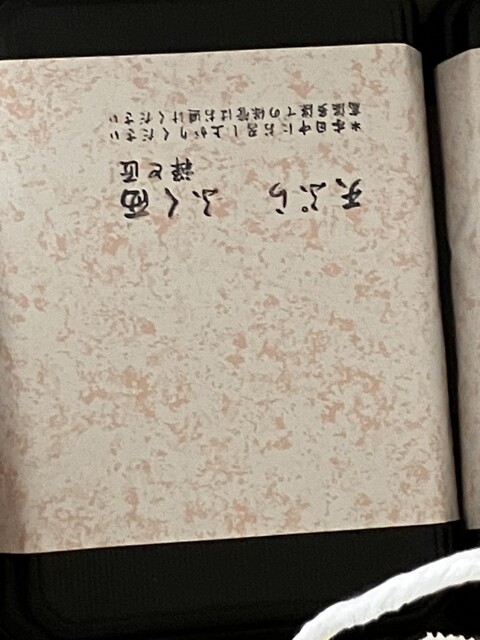 天ぷら ふく西
と匠
※本日中にお召し上がりください
高温多湿での保管はお避けください